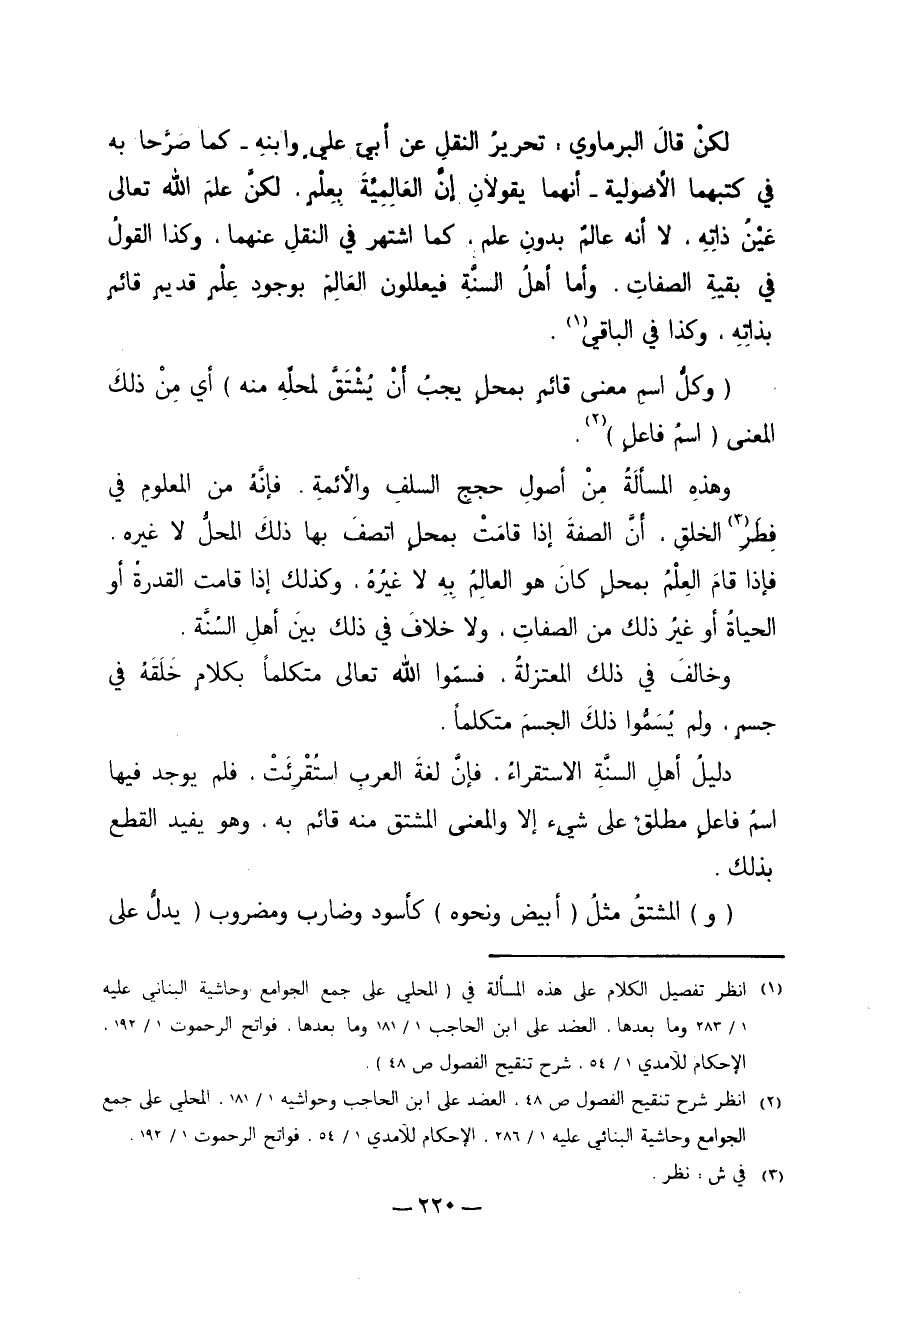 لكنْ قالَ البرماوي : تحريرُ النقلِ عن أبي علي وابنهِ ـ كما صَرَّحا به
في كتبهما الأصولية ـ أنهما يقولانِ إنَّ العَالِمِيَّةَ بِعِلْمٍ ، لكنَّ علمَ الله تعالى
عَيْنُ ذاتِهِ ، لا أنه عالمٌ بدونِ علم ، كما اشتهر في النقلِ عنهما ، وكذا القولُ
في بقيةِ الصفاتِ . وأما أهلُ السنَّةِ فيعللون العَالِمَ بوجودِ عِلْمٍ قديمٍ قائمٍ
بذاتِهِ ، وكذا في الباقي(١) .
( وكلُّ اسمِ معنى قائمٍ بمحلٍ يجبُ أنْ يُشْتَقَّ لمحلِّه منه ) أي مِنْ ذلكَ
المعنى ( اسمُ فاعلٍ )(٢) .
وهذهِ المسألَةُ مِنْ أصولِ حججِ السلفِ والأئمةِ . فإنَّهُ من المعلومِ في
فِطَرِ(٣) الخلقِ ، أنَّ الصفةَ إذا قامَتْ بمحلٍ اتصفَ بها ذلكَ المحلُّ لا غيره .
فإذا قامَ العِلْمُ بمحلٍ كانَ هو العالِمُ بِهِ لا غَيْرُهُ ، وكذلك إذا قامت القدرةُ أو
الحياةُ أو غيرُ ذلك من الصفاتِ ، ولا خلافَ في ذلك بينَ أهلِ السُنَّة .
وخالفَ في ذلك المعتزلةُ ، فسمّوا الله تعالى متكلماً بكلامٍ خَلَقَهُ في
جسمٍ ، ولم يُسَمُّوا ذلكَ الجسمَ متكلماً .
دليلُ أهلِ السنَّةِ الاستقراءُ ، فإنَّ لغةَ العربِ استُقْرِئَتْ ، فلم يوجد فيها
اسمُ فاعلٍ مطلقٌ على شيء إلا والمعنى المشتق منه قائم به ، وهو يفيد القطع
بذلك .
( و ) المشتقُ مثلُ ( أبيض ونحوه ) كأسود وضارب ومضروب ( يدلُّ على
(١) انظر تفصيل الكلام على هذه المسألة في ( المحلي على جمع الجوامع وحاشية البناني عليه
١ / ٢٨٣ وما بعدها ، العضد على ابن الحاجب ١ / ١٨١ وما بعدها ، فواتح الرحموت ١ / ١٩٢ ،
الإحكام للآمدي ١ / ٥٤ ، شرح تنقيح الفصول ص ٤٨ ) .
(٢) انظر شرح تنقيح الفصول ص ٤٨ ، العضد على ابن الحاجب وحواشيه ١ / ١٨١ ، المحلي على جمع
الجوامع وحاشية البناني عليه ١ / ٢٨٦ ، الإحكام للآمدي ١ / ٥٤ ، فواتح الرحموت ١ / ١٩٢ .
(٣) في ش : نظر .
— ٢٢٠ —